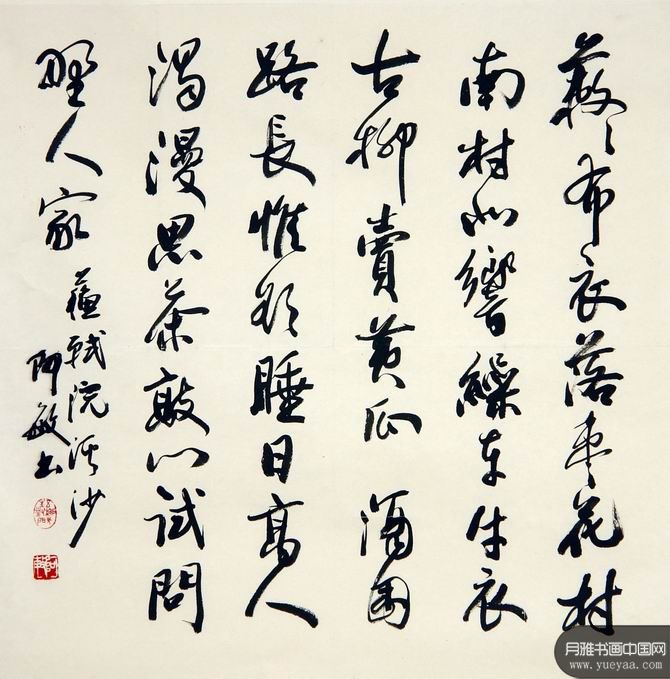 蔌々布衣落枣花村
南村北響繰车牛衣
古柳賣黄瓜 酒困
路長惟欲睡日高人
渴漫思茶敲门試問
野人家 蘇軾浣溪沙
阿敏书
月雅书画中国网
www.yueyaa.com